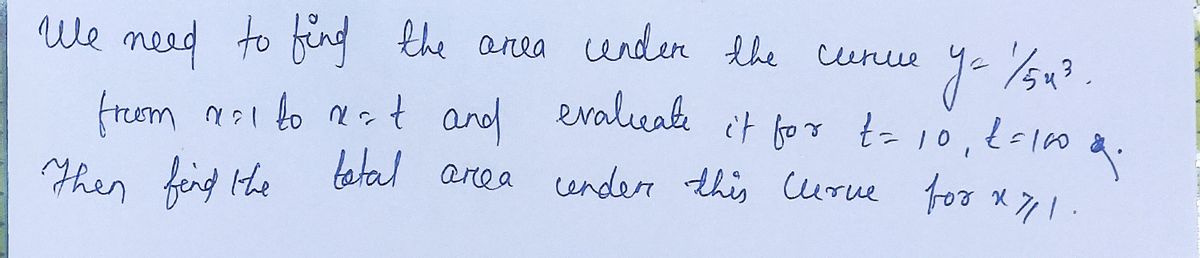 We need to find the area under the curve y = 1/5x³.
from x=1 to x=t and evaluate it for t=10, t=100 &.
Then find the total area under this curve for x ≥ 1.